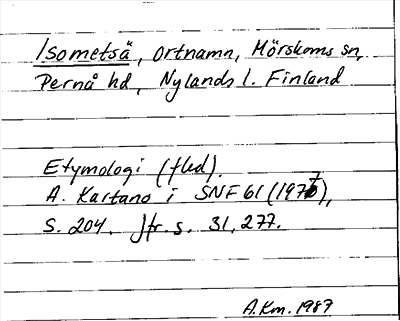 Isometsä, ortnamn, Mörskoms sn,
Pernå hd, Nylands l. Finland
Etymologi (fled).
A. Kartano i SNF 61 (1977),
S. 204. Jfr. s. 31, 277.
A.Km. 1987